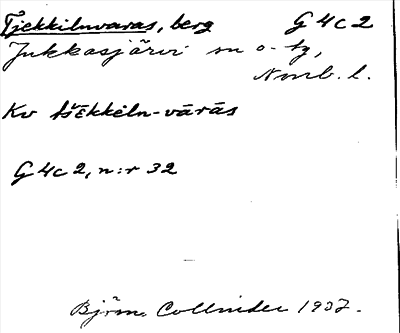 Tjekkiluvaras, berg G 4 c 2
Jukkasjärvi sn o. tg,
Norrb. l.
Kv tšēkkėln-vārās
G 4 c 2, n:r 32
Björn Collinder 1937.